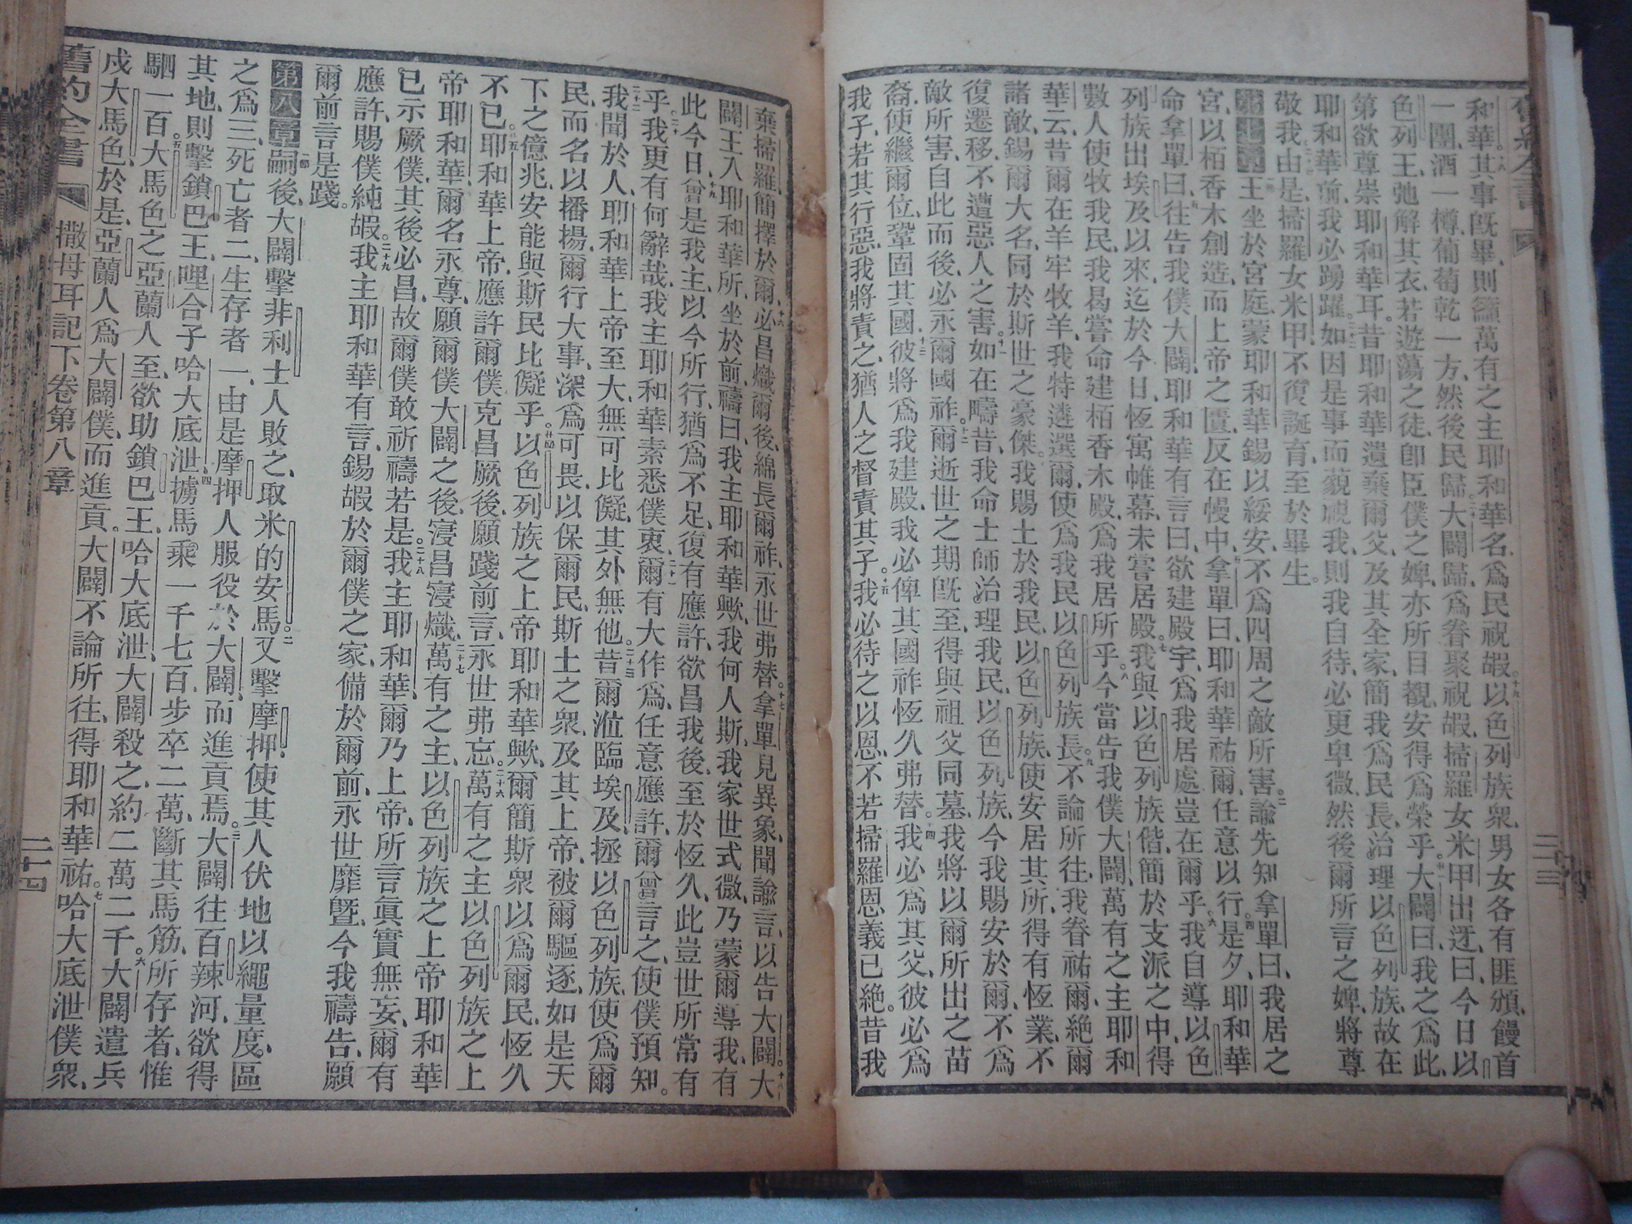 和華其事旣畢則籲萬有之主耶和華名爲民祝嘏十九以色列族衆男女各有匪頒饅首
一團酒一樽葡萄乾一方然後民歸二十大闢歸爲眷聚祝嘏掃羅女米甲出迓曰今日以
色列王弛解其衣若遊蕩之徒卽臣僕之婢亦所目覩安得爲榮乎二十一大闢曰我之爲此
第欲尊崇耶和華耳昔耶和華遺棄爾父及其全家簡我爲民長治理以色列族故在
耶和華前我必踴躍二十二如因是事而藐視我則我自待必更卑微然後爾所言之婢將尊
敬我二十三由是掃羅女米甲不復誕育至於畢生
第七章王坐於宮庭蒙耶和華錫以綏安不爲四周之敵所害二諭先知拿單曰我居之
宮以栢香木創造而上帝之匱反在幔中三拿單曰耶和華祐爾任意以行四是夕耶和華
命拿單曰五往告我僕大闢耶和華有言曰欲建殿宇爲我居處豈在爾乎六我自導以色
列族出埃及以來迄於今日恆寓帷幕未嘗居殿七我與以色列族偕簡於支派之中得
數人使牧我民我曷嘗命建栢香木殿爲我居所乎八今當告我僕大闢萬有之主耶和
華云昔爾在羊牢牧羊我特遴選爾使爲我民以色列族長九不論所往我眷祐爾絶爾
諸敵錫爾大名同於斯世之豪傑十我賜土於我民以色列族使安居其所得有恆業不
復遷移不遭惡人之害十一如在疇昔我命士師治理我民以色列族今我賜安於爾不爲
敵所害自此而後必永爾國祚十二爾逝世之期旣至得與祖父同墓我將以爾所出之苗
裔使繼爾位鞏固其國十三彼將爲我建殿我必俾其國祚恆久弗替十四我必爲其父彼必爲
我子若其行惡我將責之猶人之督責其子十五我必待之以恩不若掃羅恩義已絶昔我
棄掃羅簡擇於爾十六必昌熾爾後綿長爾祚永世弗替十七拿單見異象聞諭言以告大闢十八大
闢王入耶和華所坐於前禱曰我主耶和華歟我何人斯我家世式微乃蒙爾導我有
此今日十九曾是我主以今所行猶爲不足復有應許欲昌我後至於恆久此豈世所常有
乎二十我更有何辭哉我主耶和華素悉僕衷二十一爾有大作爲任意應許爾曾言之使僕預知
二十二我聞於人耶和華上帝至大無可比儗其外無他二十三昔爾涖臨埃及拯以色列族使爲爾
民而名以播揚爾行大事深爲可畏以保爾民斯土之衆及其上帝被爾驅逐如是天
下之億兆安能與斯民比儗乎二十四以色列族之上帝耶和華歟爾簡斯衆以爲爾民恆久
不已二十五耶和華上帝應許爾僕克昌厥後願踐前言永世弗忘二十六萬有之主以色列族之上
帝耶和華爾名永尊願爾僕大闢之後寖昌寖熾二十七萬有之主以色列族之上帝耶和華
已示厥僕其後必昌故爾僕敢祈禱若是二十八我主耶和華爾乃上帝所言眞實無妄爾有
應許賜僕純嘏二十九我主耶和華有言錫嘏於爾僕之家備於爾前永世靡曁今我禱告願
爾前言是踐
第八章嗣後大闢擊非利士人敗之取米的安馬二又擊摩押使其人伏地以繩量度區
之爲三死亡者二生存者一由是摩押人服役於大闢而進貢焉三大闢往百辣河欲得
其地則擊鎖巴王哩合子哈大底泄四擄馬乘一千七百步卒二萬斷其馬筋所存者惟
駟一百五大馬色之亞蘭人至欲助鎖巴王哈大底泄大闢殺之約二萬二千六大闢遣兵
戍大馬色於是亞蘭人爲大闢僕而進貢大闢不論所往得耶和華祐七哈大底泄僕衆
舊約全書 撒母耳記下卷第八章 二十四